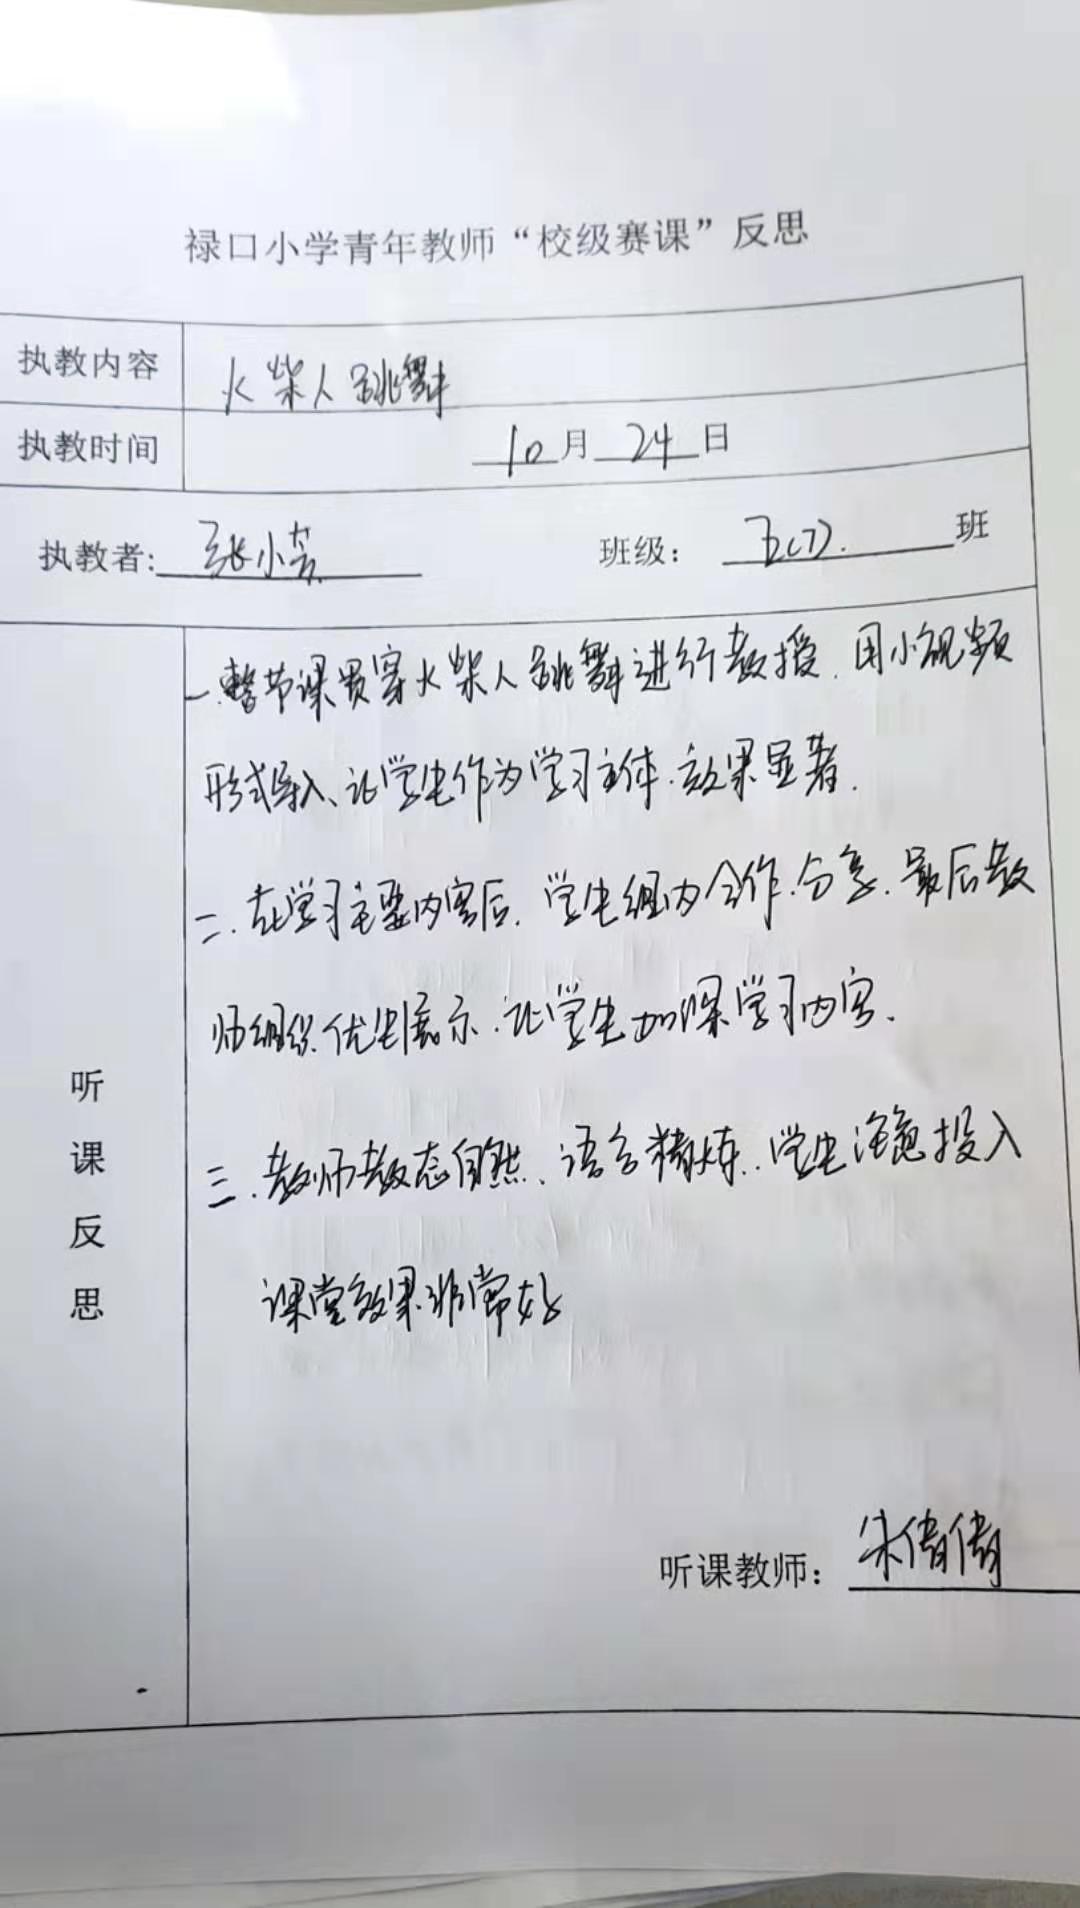 禄口小学青年教师“校级赛课”反思
执教内容 火柴人跳舞
执教时间 10月24日
执教者: 张小芸 班级: 五(7). 班
一.整节课贯穿火柴人跳舞进行教授.用小视频
形式导入、让学生作为学习主体.效果显著.
二.在学习主要内容后.学生组内合作.分享.最后教
师组织优生展示.让学生加深学习内容.
三.教师教态自然、语言精炼.学生注意投入
课堂效果非常好
听课反思
听课教师: 朱倩倩